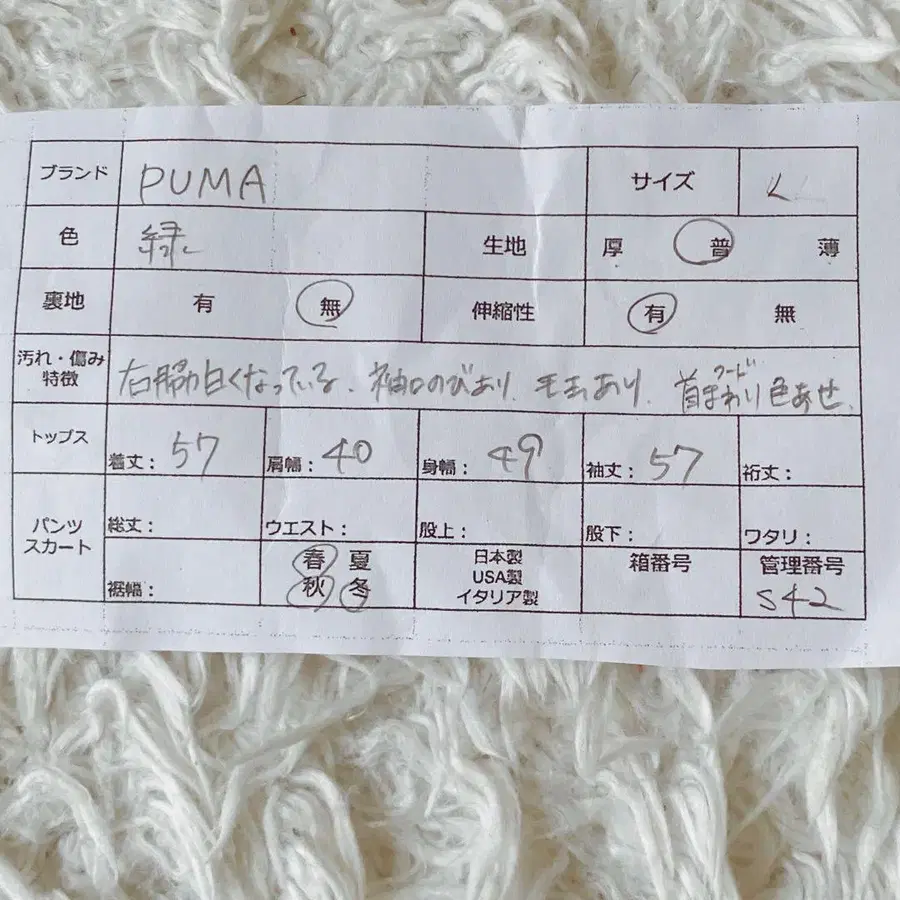 ブランド PUMA サイズ L
色 緑 生地 厚 普 薄
裏地 有 無 伸縮性 有 無
汚れ・傷み
特徴
フード
右脇白くなっている、袖口のびあり、毛玉あり、首まわり色あせ、
トップス 着丈: 57 肩幅: 40 身幅: 49 袖丈: 57 裄丈:
パンツ
スカート
総丈: ウエスト: 股上: 股下: ワタリ:
裾幅:
春 夏
秋 冬
日本製
USA製
イタリア製
箱番号
管理番号
S42